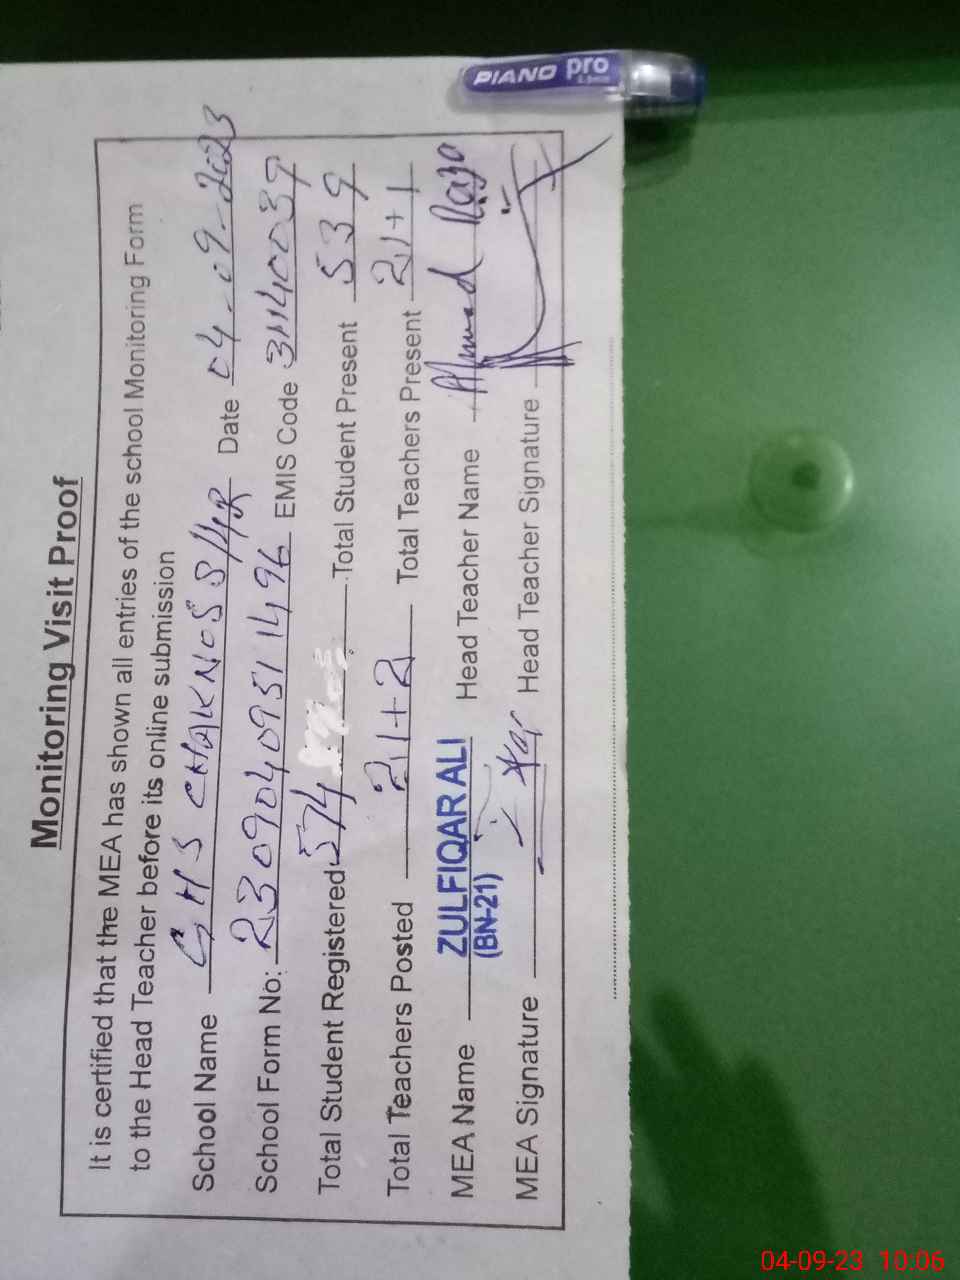 Monitoring Visit Proof
It is certified that the MEA has shown all entries of the school Monitoring Form
to the Head Teacher before its online submission
School Name GHS CHAK NO 58/4R Date 04-09-2023
School Form No: 2309040951 1496 EMIS Code 31140039
Total Student Registered 574 Total Student Present 539
Total Teachers Posted 21+2 Total Teachers Present 21+1
MEA Name ZULFIQAR ALI Head Teacher Name Ahmad Raza
(BN-21)
MEA Signature Head Teacher Signature
PIANO pro
04-09-23 10:06